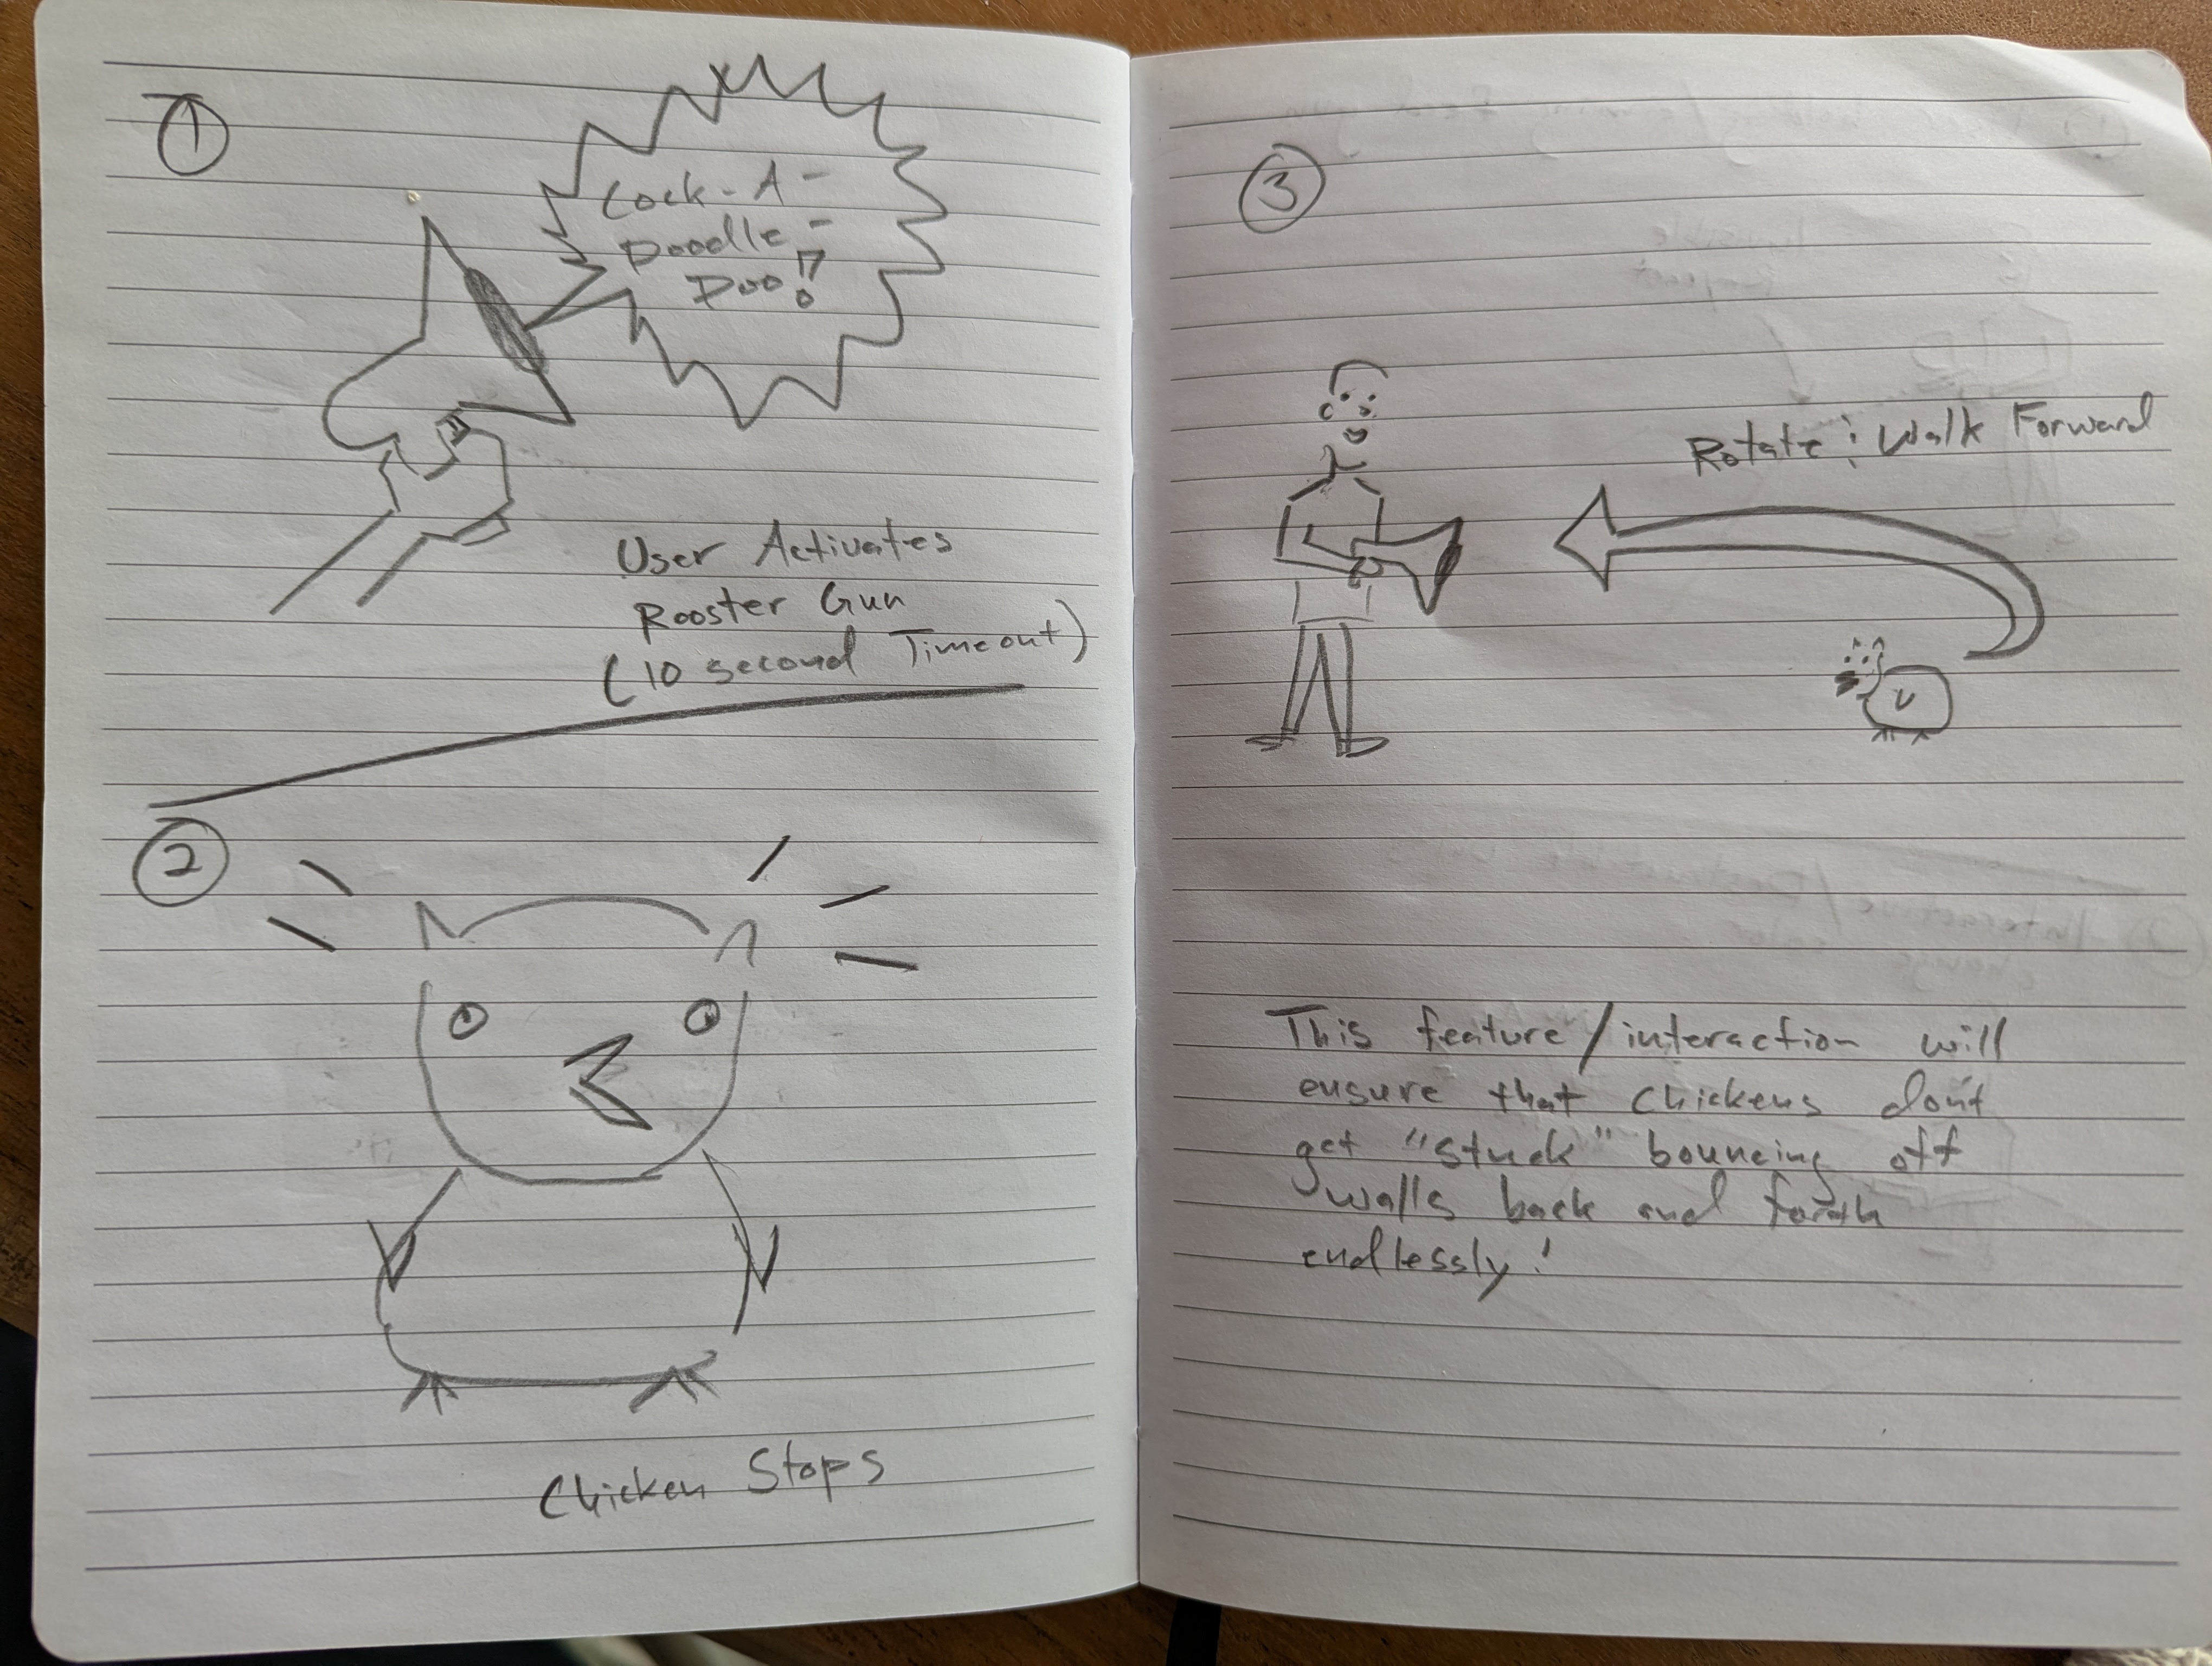 1
Cock-A-
Doodle-
Doo!
User Activates
Rooster Gun
(10 second Timeout)
2
Chicken Stops
3
Rotate & Walk Forward
This feature/interaction will
ensure that chickens don't
get "stuck" bouncing off
walls back and forth
endlessly!